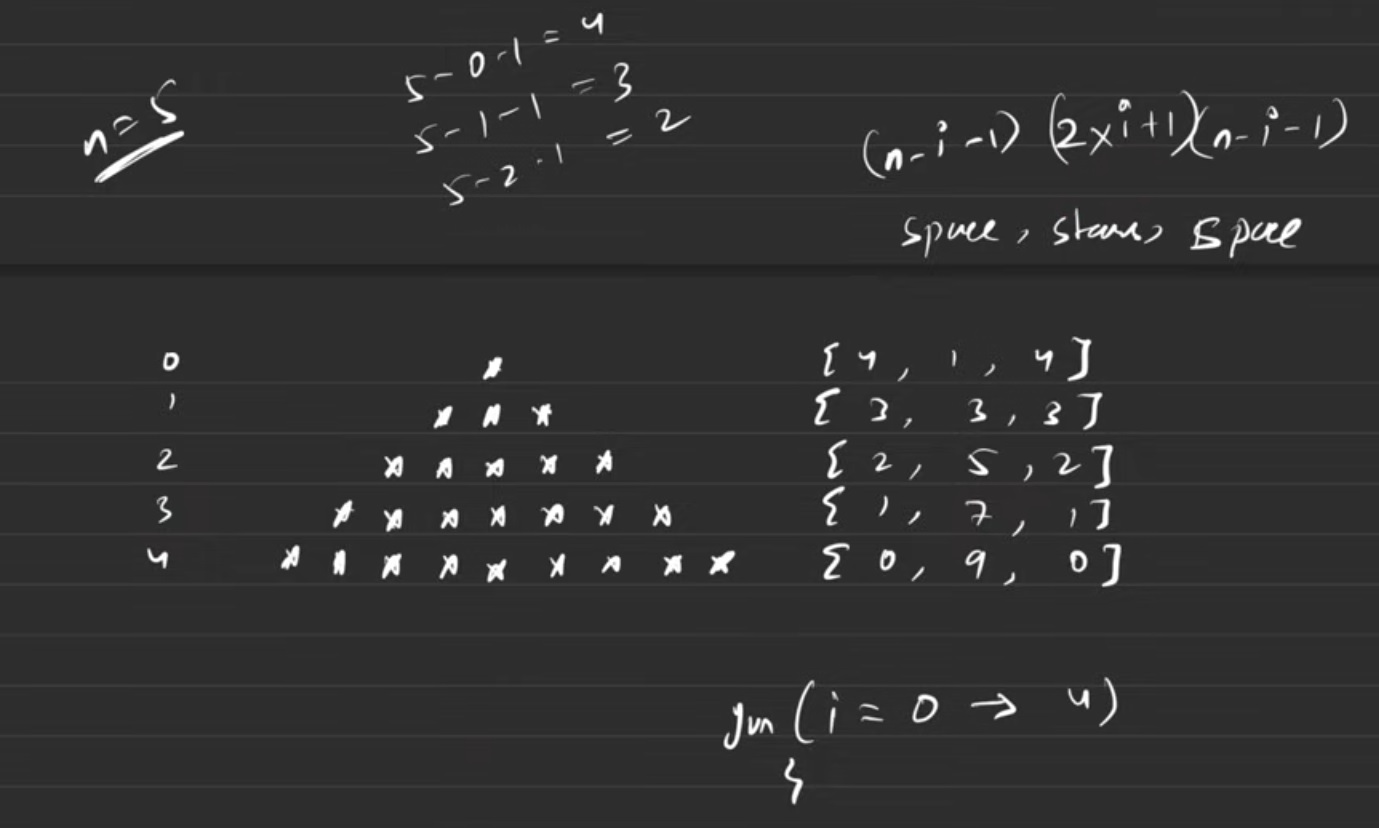 n=5
5-0-1 = 4
5-1-1 = 3
5-2-1 = 2
(n-i-1) (2xi+1)(n-i-1)
space, stars, space
0 * [4, 1, 4]
1 * * * [3, 3, 3]
2 * * * * * [2, 5, 2]
3 * * * * * * * [1, 7, 1]
4 * * * * * * * * * [0, 9, 0]
(i = 0 → 4)
{